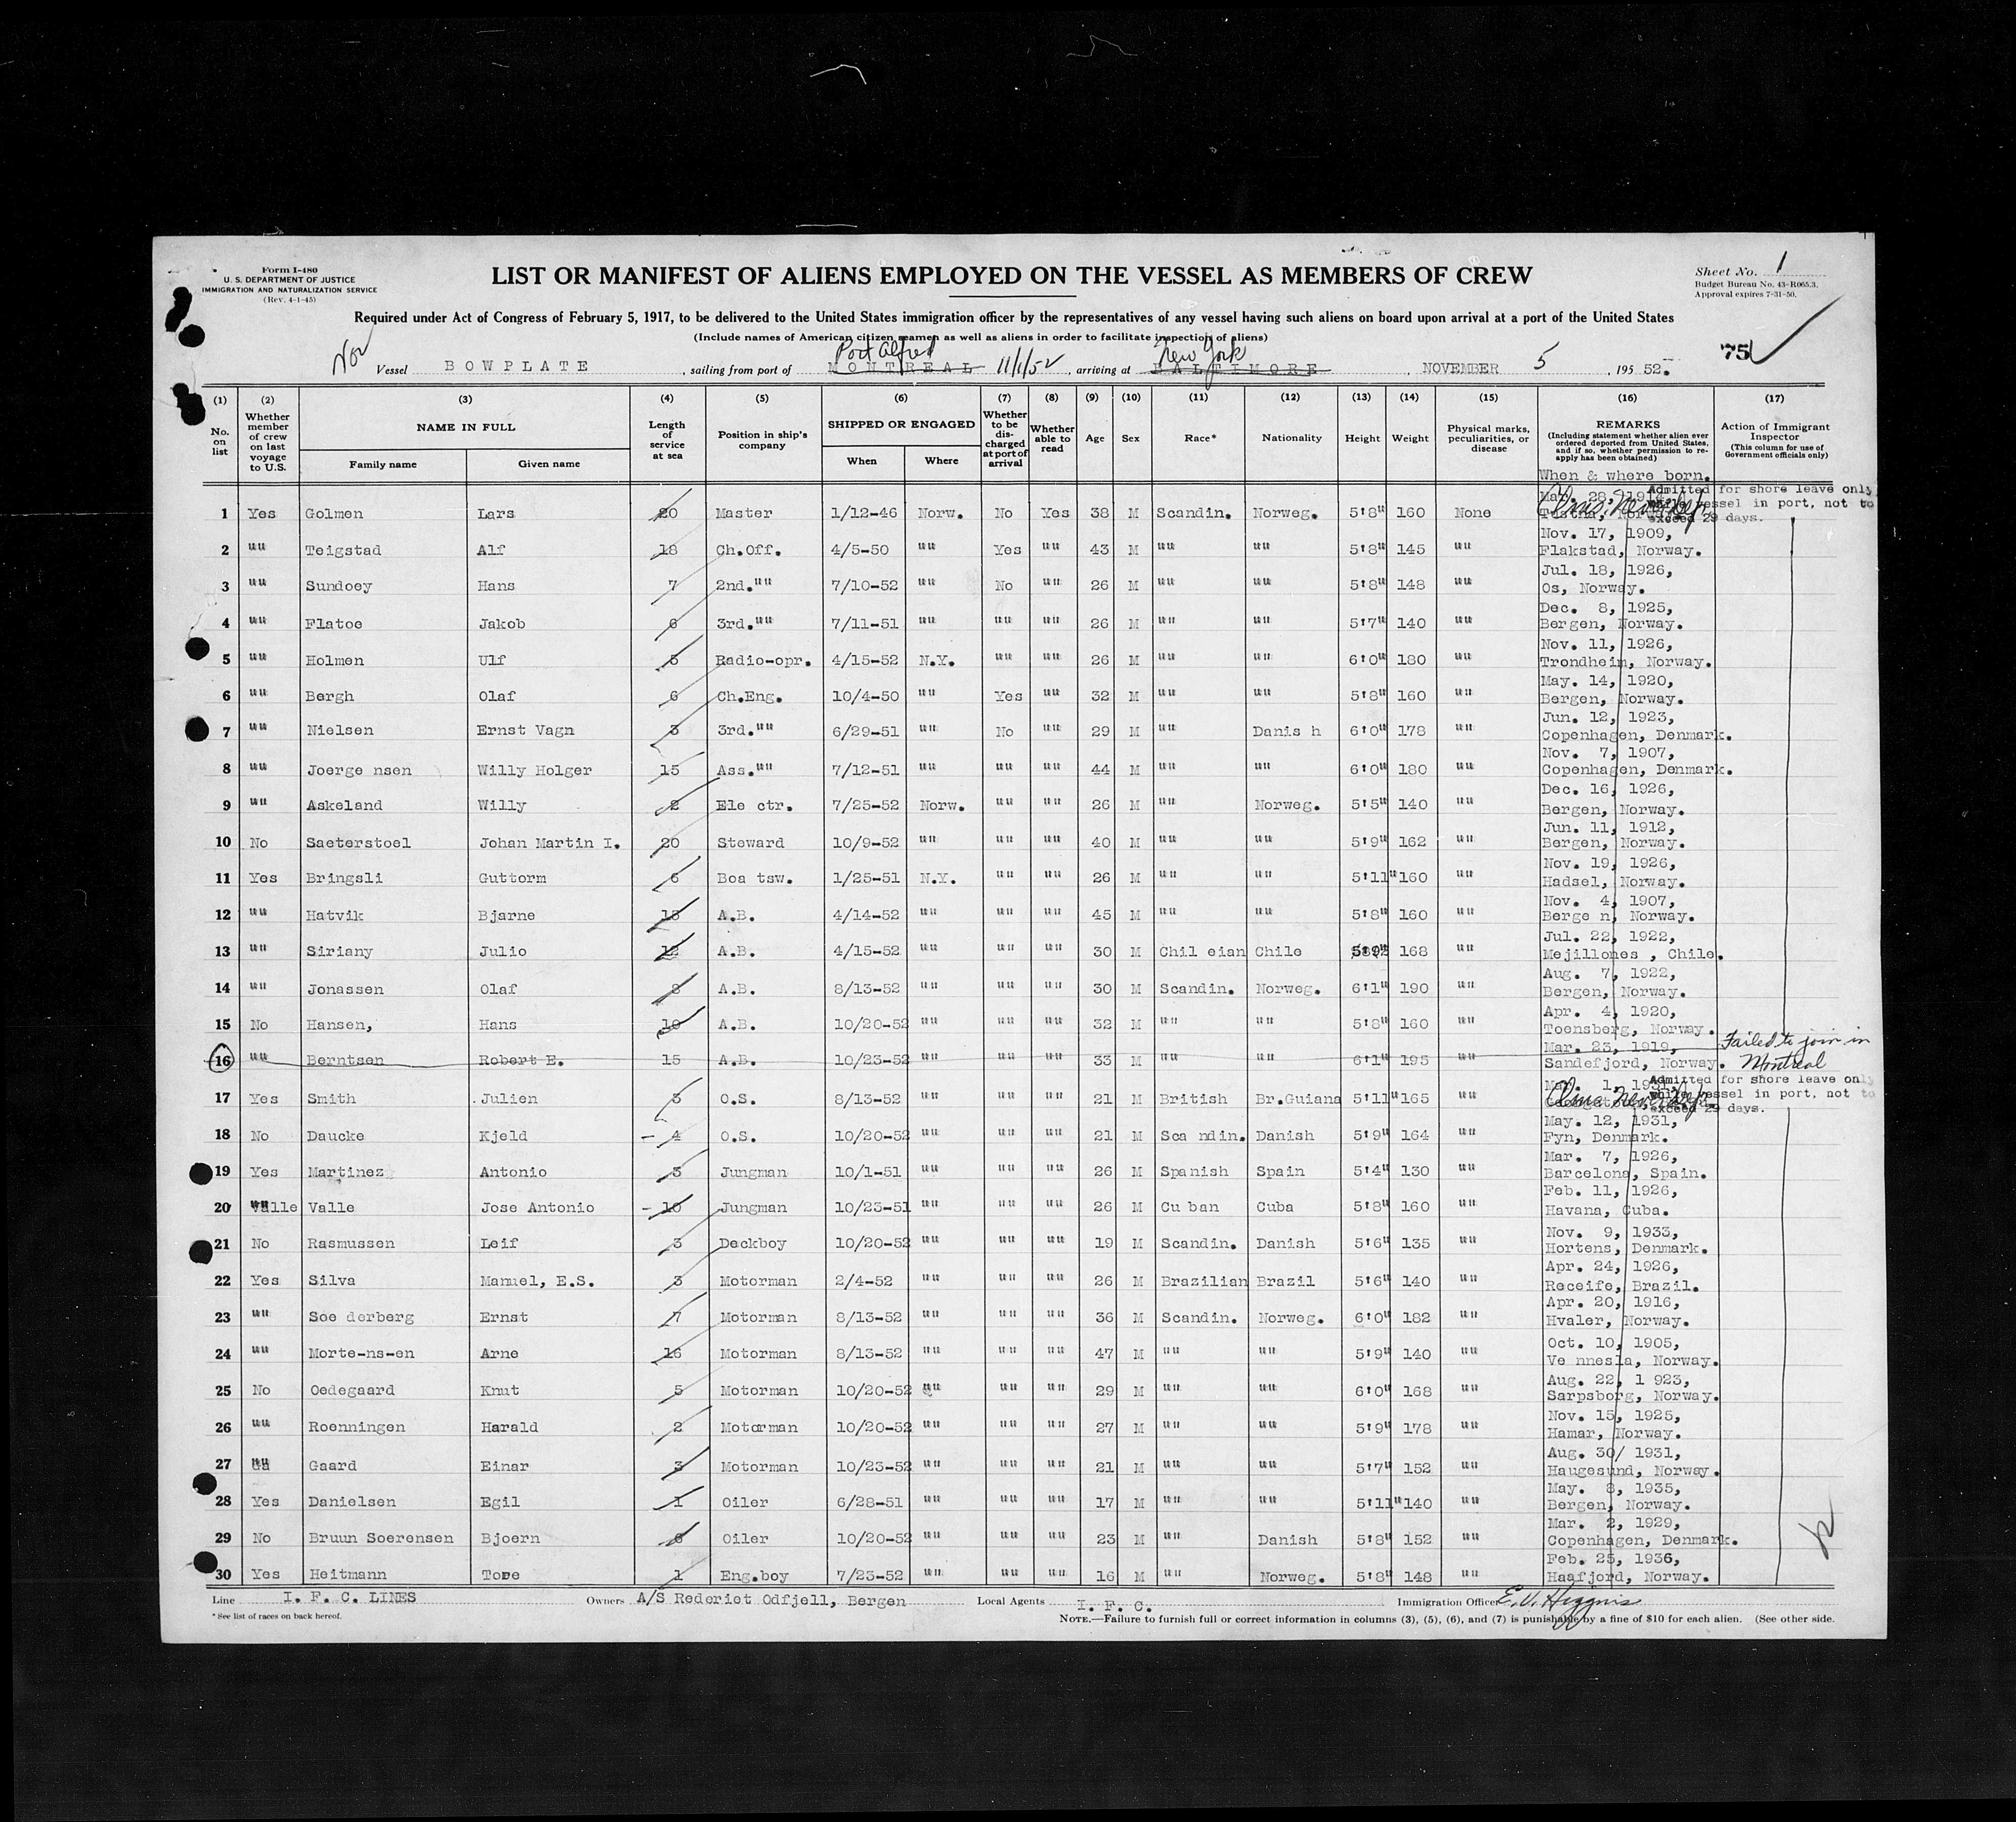 Form I-480
U. S. DEPARTMENT OF JUSTICE
IMMIGRATION AND NATURALIZATION SERVICE
(Rev. 4-1-45)
LIST OR MANIFEST OF ALIENS EMPLOYED ON THE VESSEL AS MEMBERS OF CREW
Sheet No. 1
Budget Bureau No. 43-R065.3.
Approval expires 7-31-50.
Required under Act of Congress of February 5, 1917, to be delivered to the United States immigration officer by the representatives of any vessel having such aliens on board upon arrival at a port of the United States
(Include names of American citizen seamen as well as aliens in order to facilitate inspection of aliens)
Nor Port Alfred New York 75
Vessel BOWPLATE, sailing from port of MONTREAL 11/1/52, arriving at BALTIMORE, NOVEMBER 5, 195 52.
(1) (2) (3) (4) (5) (6) (7) (8) (9) (10) (11) (12) (13) (14) (15) (16) (17)
No. on list | Whether member of crew on last voyage to U.S. | NAME IN FULL | Family name | Given name | Length of service at sea | Position in ship's company | SHIPPED OR ENGAGED | When | Where | Whether to be discharged at port of arrival | Whether able to read | Age | Sex | Race* | Nationality | Height | Weight | Physical marks, peculiarities, or disease | REMARKS (Including statement whether alien ever ordered deported from United States, and if so, whether permission to reapply has been obtained) | Action of Immigrant Inspector (This column for use of Government officials only)
When & where born.
1 Yes Golmen Lars 20 Master 1/12-46 Norw. No Yes 38 M Scandin. Norweg. 5'8" 160 None 28, Admitted for shore leave only while vessel in port, not to exceed 29 days.
2 "" Teigstad Alf 18 Ch.Off. 4/5-50 "" Yes "" 43 M "" "" 5'8" 145 "" Nov. 17, 1909, Flakstad, Norway.
3 "" Sundoey Hans 7 2nd."" 7/10-52 "" No "" 26 M "" "" 5'8" 148 "" Jul. 18, 1926, Os, Norway.
4 "" Flatoe Jakob 6 3rd."" 7/11-51 "" "" "" 26 M "" "" 5'7" 140 "" Dec. 8, 1925, Bergen, Norway.
5 "" Holmen Ulf 5 Radio-opr. 4/15-52 N.Y. "" "" 26 M "" "" 6'0" 180 "" Nov. 11, 1926, Trondheim, Norway.
6 "" Bergh Olaf 6 Ch.Eng. 10/4-50 "" Yes "" 32 M "" "" 5'8" 160 "" May. 14, 1920, Bergen, Norway.
7 "" Nielsen Ernst Vagn 3 3rd."" 6/29-51 "" No "" 29 M "" Danis h 6'0" 178 "" Jun. 12, 1923, Copenhagen, Denmark.
8 "" Joerge nsen Willy Holger 15 Ass."" 7/12-51 "" "" "" 44 M "" "" 6'0" 180 "" Nov. 7, 1907, Copenhagen, Denmark.
9 "" Askeland Willy 2 Ele ctr. 7/25-52 Norw. "" "" 26 M "" Norweg. 5'5" 140 "" Dec. 16, 1926, Bergen, Norway.
10 No Saeterstoel Johan Martin I. 20 Steward 10/9-52 "" "" "" 40 M "" "" 5'9" 162 "" Jun. 11, 1912, Bergen, Norway.
11 Yes Bringsli Guttorm 6 Boa tsw. 1/25-51 N.Y. "" "" 26 M "" "" 5'11" 160 "" Nov. 19, 1926, Hadsel, Norway.
12 "" Hatvik Bjarne 15 A.B. 4/14-52 "" "" "" 45 M "" "" 5'8" 160 "" Nov. 4, 1907, Berge n, Norway.
13 "" Siriany Julio 12 A.B. 4/15-52 "" "" "" 30 M Chil eian Chile 168 "" Jul. 22, 1922, Mejillones , Chile.
14 "" Jonassen Olaf 8 A.B. 8/13-52 "" "" "" 30 M Scandin. Norweg. 6'1" 190 "" Aug. 7, 1922, Bergen, Norway.
15 No Hansen, Hans 10 A.B. 10/20-52 "" "" "" 32 M "" "" 5'8" 160 "" Apr. 4, 1920, Toensberg, Norway.
16 "" Berntsen Robert E. 15 A.B. 10/23-52 "" "" "" 33 M "" "" 6'1" 195 "" Mar. 23, 1919, Sandefjord, Norway. Failed to join in Montreal
17 Yes Smith Julien 5 O.S. 8/13-52 "" "" "" 21 M British Br.Guiana 5'11" 165 "" 1, 1931, Admitted for shore leave only while vessel in port, not to exceed 29 days.
18 No Daucke Kjeld 4 O.S. 10/20-52 "" "" "" 21 M Sca ndin. Danish 5'9" 164 "" May. 12, 1931, Fyn, Denmark.
19 Yes Martinez Antonio 3 Jungman 10/1-51 "" "" "" 26 M Spanish Spain 5'4" 130 "" Mar. 7, 1926, Barcelona, Spain.
20 "" Valle Jose Antonio 10 Jungman 10/23-51 "" "" "" 26 M Cu ban Cuba 5'8" 160 "" Feb. 11, 1926, Havana, Cuba.
21 No Rasmussen Leif 3 Deckboy 10/20-52 "" "" "" 19 M Scandin. Danish 5'6" 135 "" Nov. 9, 1933, Hortens, Denmark.
22 Yes Silva Manuel, E.S. 3 Motorman 2/4-52 "" "" "" 26 M Brazilian Brazil 5'6" 140 "" Apr. 24, 1926, Receife, Brazil.
23 "" Soe derberg Ernst 7 Motorman 8/13-52 "" "" "" 36 M Scandin. Norweg. 6'0" 182 "" Apr. 20, 1916, Hvaler, Norway.
24 "" Morte-ns-en Arne 16 Motorman 8/13-52 "" "" "" 47 M "" "" 5'9" 140 "" Oct. 10, 1905, Ve nnesla, Norway.
25 No Oedegaard Knut 5 Motorman 10/20-52 "" "" "" 29 M "" "" 6'0" 168 "" Aug. 22, 1 923, Sarpsborg, Norway.
26 "" Roenningen Harald 2 Motorman 10/20-52 "" "" "" 27 M "" "" 5'9" 178 "" Nov. 15, 1925, Hamar, Norway.
27 "" Gaard Einar 3 Motorman 10/23-52 "" "" "" 21 M "" "" 5'7" 152 "" Aug. 30/ 1931, Haugesund, Norway.
28 Yes Danielsen Egil 1 Oiler 6/28-51 "" "" "" 17 M "" "" 5'11" 140 "" May. 8, 1935, Bergen, Norway.
29 No Bruun Soerensen Bjoern 6 Oiler 10/20-52 "" "" "" 23 M "" Danish 5'8" 152 "" Mar. 2, 1929, Copenhagen, Denmark.
30 Yes Heitmann Tore 1 Eng.boy 7/23-52 "" "" "" 16 M "" Norweg. 5'8" 148 "" Feb. 25, 1936, Haafjord, Norway.
Line I. F. C. LINES Owners A/S Rederiet Odfjell, Bergen Local Agents I. F. C. Immigration Officer E. V. Higgins
* See list of races on back hereof.
NOTE.—Failure to furnish full or correct information in columns (3), (5), (6), and (7) is punishable by a fine of $10 for each alien. (See other side.